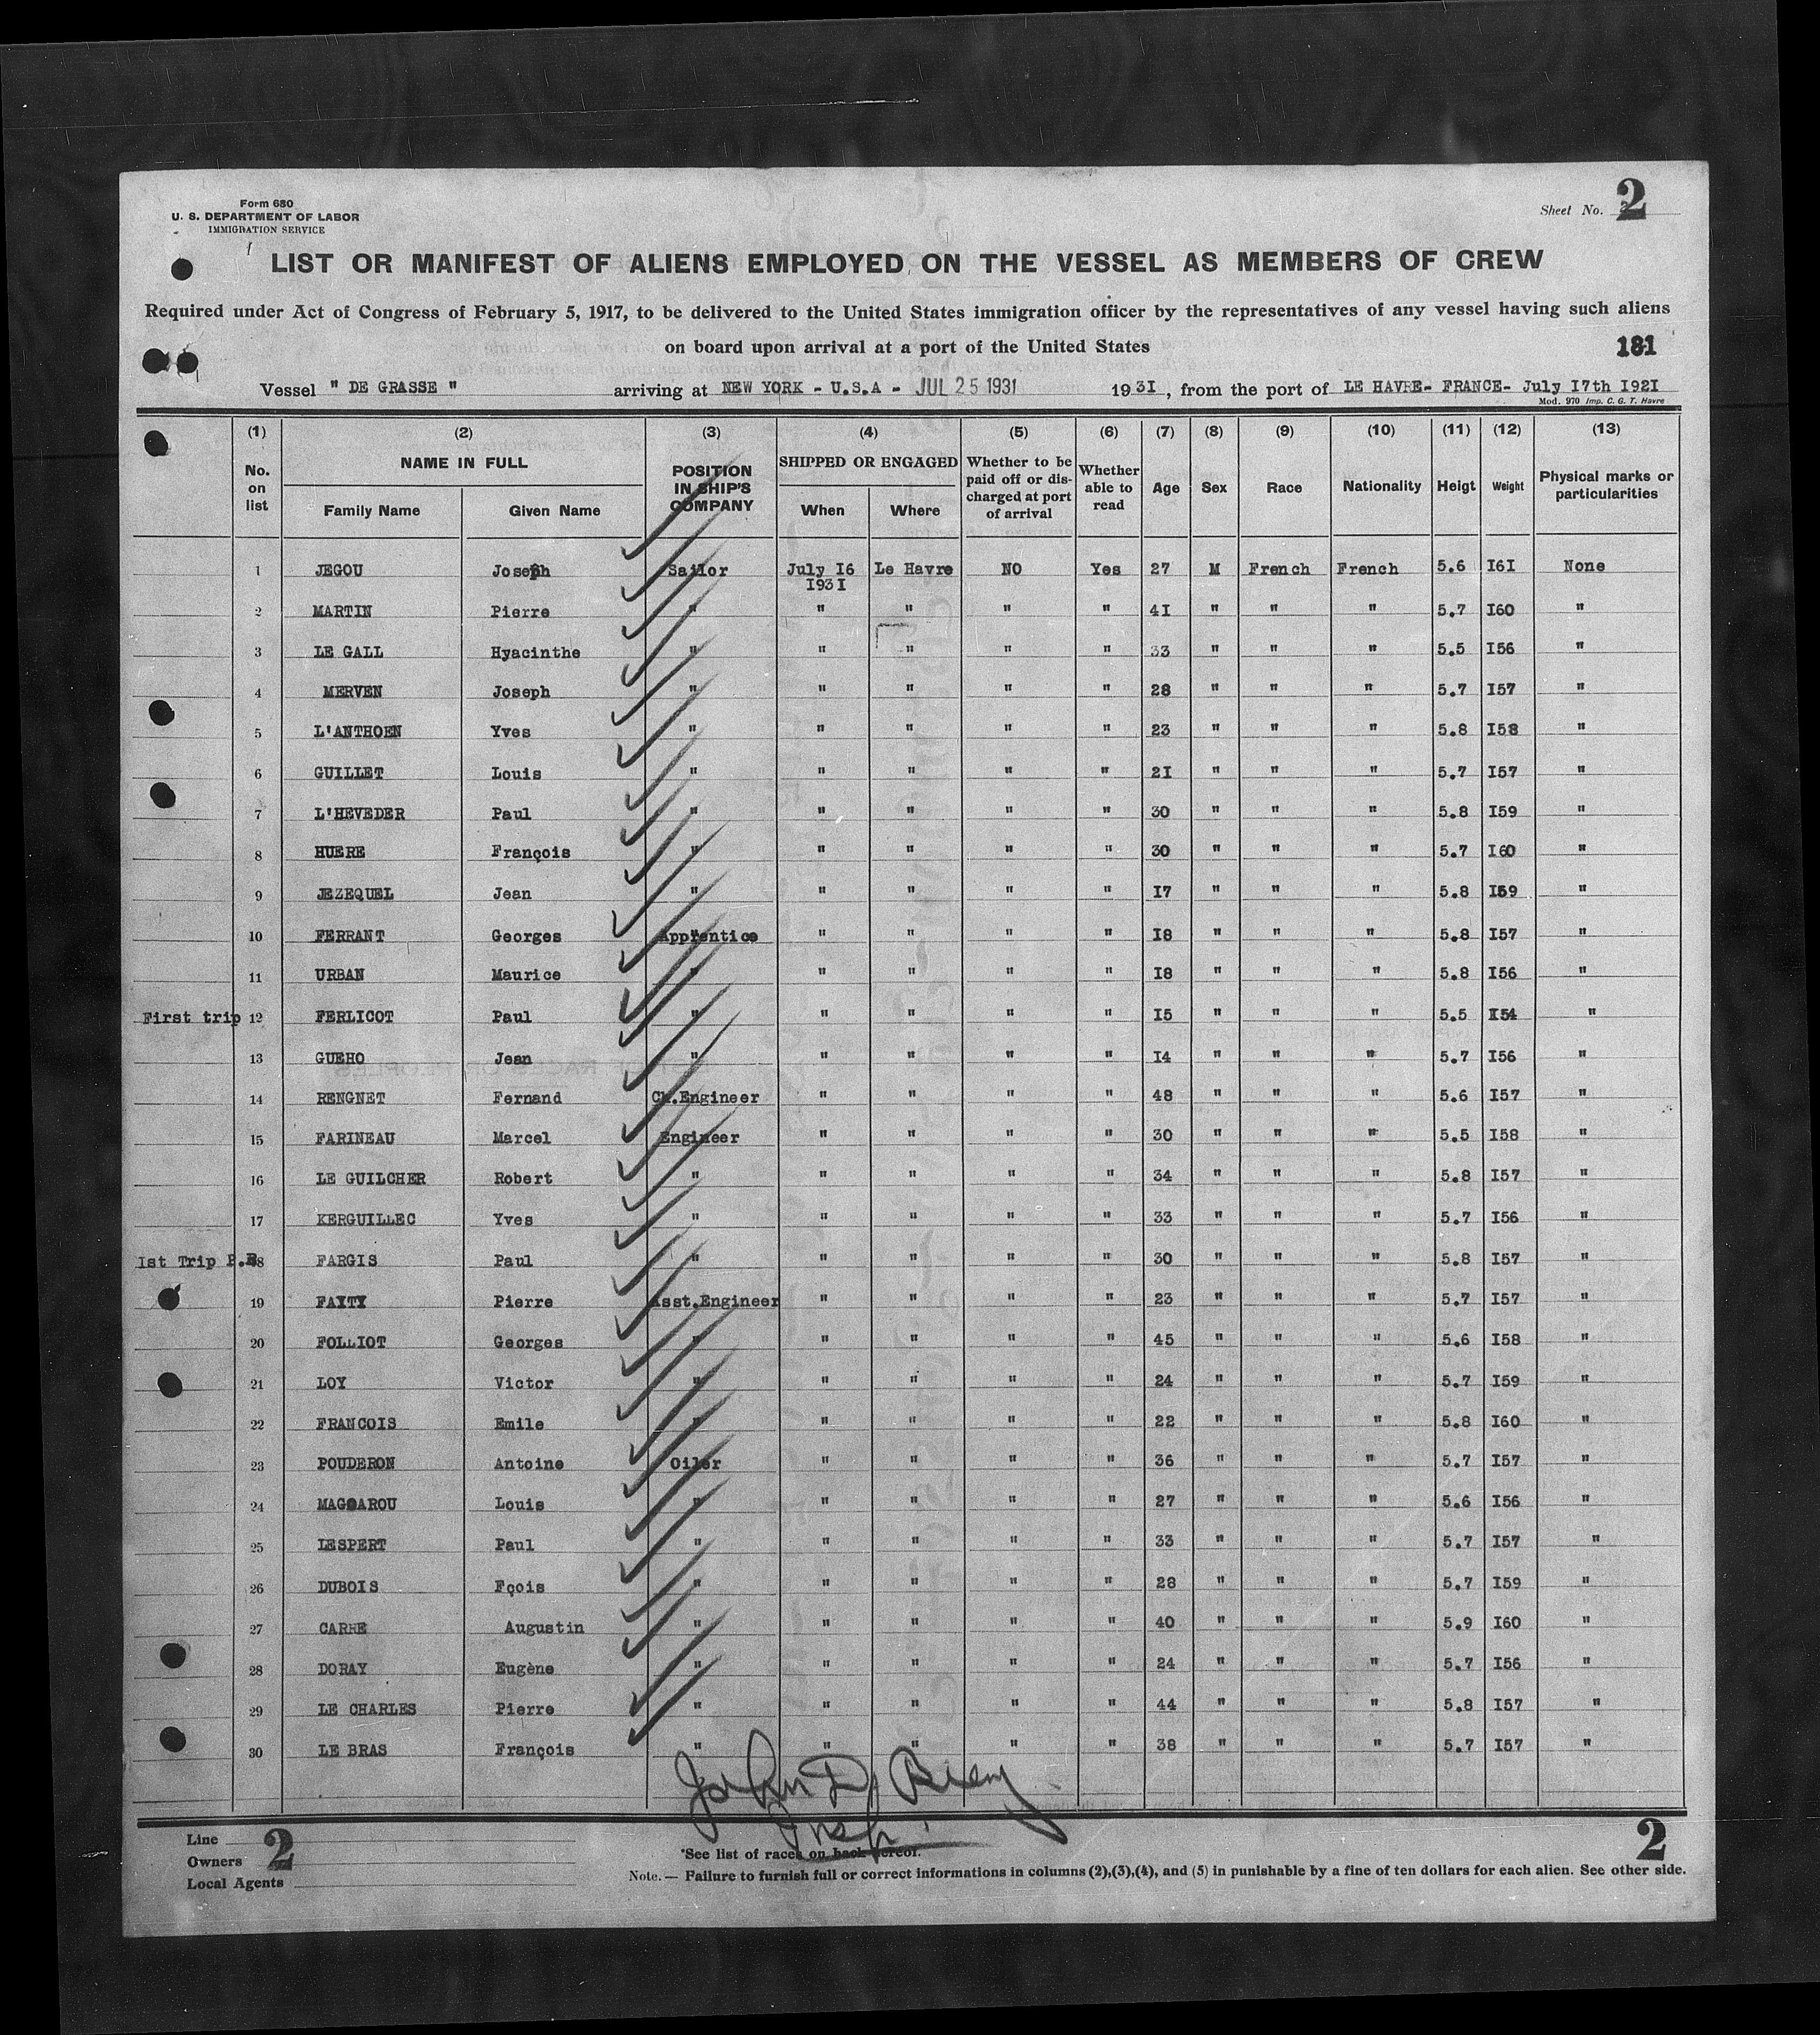 Form 680
U. S. DEPARTMENT OF LABOR
IMMIGRATION SERVICE
Sheet No. 2
LIST OR MANIFEST OF ALIENS EMPLOYED ON THE VESSEL AS MEMBERS OF CREW
Required under Act of Congress of February 5, 1917, to be delivered to the United States immigration officer by the representatives of any vessel having such aliens
on board upon arrival at a port of the United States
181
Vessel " DE GRASSE " arriving at NEW YORK - U.S.A - JUL 25 1931 1931, from the port of LE HAVRE- FRANCE- July I7th I92I
Mod. 970 Imp. C. G. T. Havre
(1) (2) (3) (4) (5) (6) (7) (8) (9) (10) (11) (12) (13)
No. on list NAME IN FULL Family Name Given Name POSITION IN SHIP'S COMPANY SHIPPED OR ENGAGED When Where Whether to be paid off or discharged at port of arrival Whether able to read Age Sex Race Nationality Heigt Weight Physical marks or particularities
1 JEGOU Joseph Sailor July I6 I93I Le Havre NO Yes 27 M French French 5.6 I6I None
2 MARTIN Pierre " " " " " 4I " " " 5.7 I60 "
3 LE GALL Hyacinthe " " " " " 33 " " " 5.5 I56 "
4 MERVEN Joseph " " " " " 28 " " " 5.7 I57 "
5 L'ANTHOEN Yves " " " " " 23 " " " 5.8 I58 "
6 GUILLET Louis " " " " " 2I " " " 5.7 I57 "
7 L'HEVEDER Paul " " " " " 30 " " " 5.8 I59 "
8 HUERE François " " " " " 30 " " " 5.7 I60 "
9 JEZEQUEL Jean " " " " " I7 " " " 5.8 I59 "
10 FERRANT Georges Apprentice " " " " I8 " " " 5.8 I57 "
11 URBAN Maurice " " " " " I8 " " " 5.8 I56 "
First trip 12 FERLICOT Paul " " " " " I5 " " " 5.5 I54 "
13 GUEHO Jean " " " " " I4 " " " 5.7 I56 "
14 RENGNET Fernand Ch.Engineer " " " " 48 " " " 5.6 I57 "
15 FARINEAU Marcel Engineer " " " " 30 " " " 5.5 I58 "
16 LE GUILCHER Robert " " " " " 34 " " " 5.8 I57 "
17 KERGUILLEC Yves " " " " " 33 " " " 5.7 I56 "
Ist Trip 18 FARGIS Paul " " " " " 30 " " " 5.8 I57 "
19 Pierre Asst.Engineer " " " " 23 " " " 5.7 I57 "
20 FOLLIOT Georges " " " " " 45 " " " 5.6 I58 "
21 LOY Victor " " " " " 24 " " " 5.7 I59 "
22 FRANCOIS Emile " " " " " 22 " " " 5.8 I60 "
23 POUDERON Antoine Oiler " " " " 36 " " " 5.7 I57 "
24 Louis " " " " " 27 " " " 5.6 I56 "
25 LESPERT Paul " " " " " 33 " " " 5.7 I57 "
26 DUBOIS Fçois " " " " " 28 " " " 5.7 I59 "
27 CARRE Augustin " " " " " 40 " " " 5.9 I60 "
28 DORAY Eugène " " " " " 24 " " " 5.7 I56 "
29 LE CHARLES Pierre " " " " " 44 " " " 5.8 I57 "
30 LE BRAS François " " " " " 38 " " " 5.7 I57 "
John D.
Insp.
Line
Owners 2
Local Agents
*See list of races on back hereof.
2
Note. — Failure to furnish full or correct informations in columns (2),(3),(4), and (5) in punishable by a fine of ten dollars for each alien. See other side.